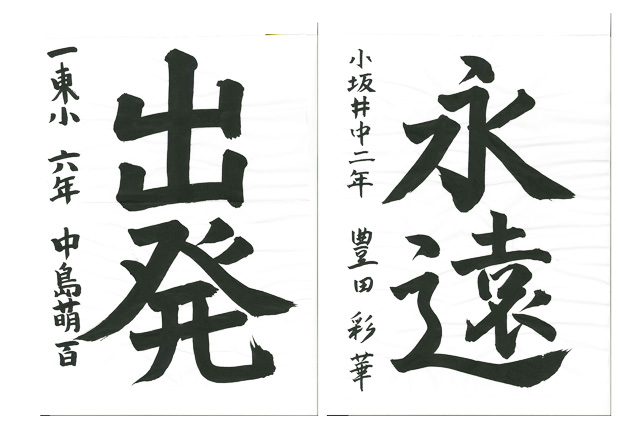 永遠
小坂井中二年 豊田彩華
出発
一東小 六年 中島萌百